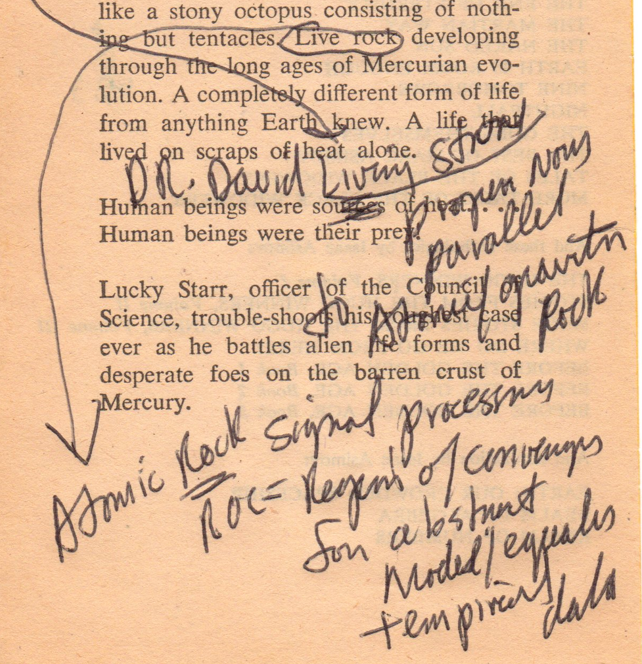 like a stony octopus consisting of noth-
ing but tentacles. Live rock developing
through the long ages of Mercurian evo-
lution. A completely different form of life
from anything Earth knew. A life that
lived on scraps of heat alone.
DR. David Living stone
Human beings were sources of heat. . .
Human beings were their prey!
proper Nous
parallel
to Atomic/graviton
Rock
Lucky Starr, officer of the Council of
Science, trouble-shoots his roughest case
ever as he battles alien life forms and
desperate foes on the barren crust of
Mercury.
Atomic Rock signal processing
ROC = Region of convergs
for abstract
Model/equales
+ empirical data